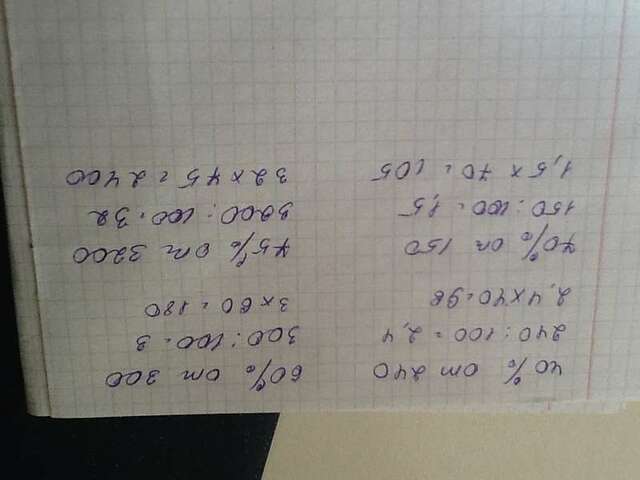 40% от 240
240 : 100 = 2,4
2,4 x 40 = 96
60% от 300
300 : 100 = 3
3 x 60 = 180
70% от 150
150 : 100 = 1,5
1,5 x 70 = 105
75% от 3200
3200 : 100 = 32
32 x 75 = 2400